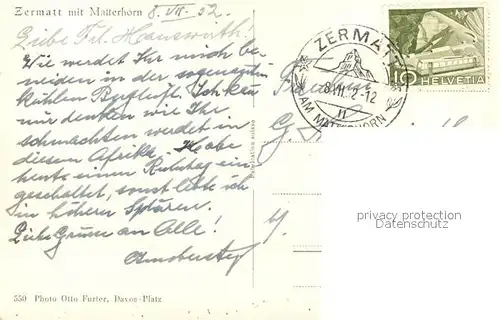 Zermatt mit Matterhorn 8. VII. 52.
Liebe Frl. Hauswirth.
Wie werdet Ihr mich be-
neiden in der sogenannten
kühlen Bergluft. Ich kan
nur denken wie Ihr
schmachten werdet in
diesem Afrika. Habe
heute einen Ruhetag ein-
geschaltet, sonst lebe ich
in höhern Sphären.
Liebe Grüsse an Alle!
ZERMATT
8.VII. 2-12
AM MATTERHORN
10 HELVETIA
privacy protection
Datenschutz
550 Photo Otto Furter, Davos-Platz